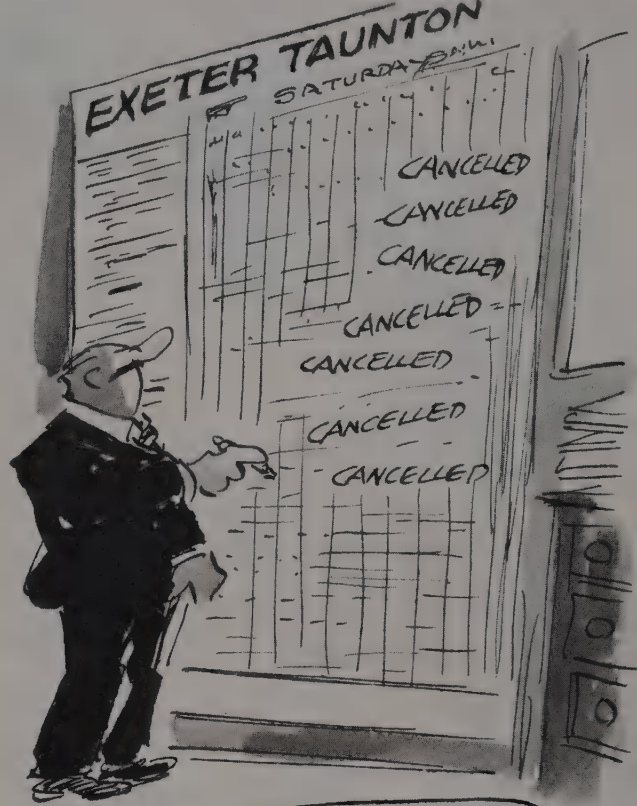 EXETER TAUNTON
SATURDAY
CANCELLED
CANCELLED
CANCELLED
CANCELLED
CANCELLED
CANCELLED
CANCELLED